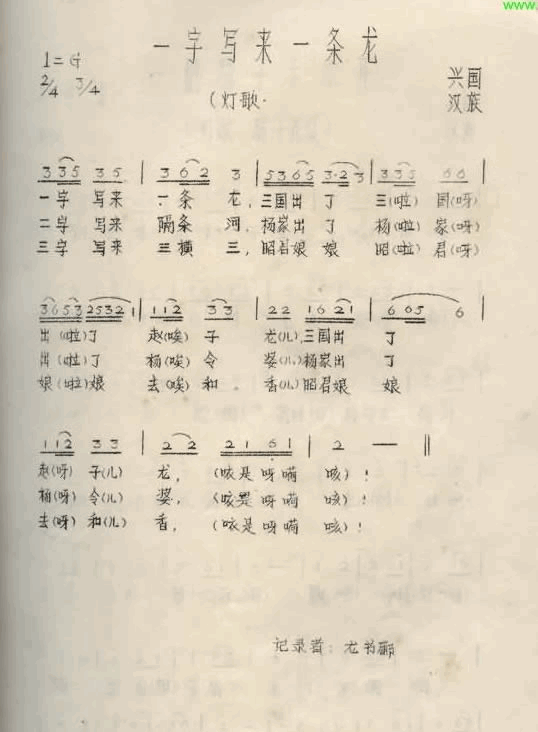 www.
一字写来一条龙
1=G
2/4 3/4
(灯歌.
兴国
汉族
3 3 5 3 5 | 3 6 2 3 | 5 3 6 5 3·2 3 | 3 3 5 6 6 |
一字 写来 一条 龙, 三国出 了 三(啦) 国(呀)
二字 写来 隔条 河, 杨家出 了 杨(啦) 家(呀)
三字 写来 三横 三, 昭君娘 娘 昭(啦) 君(呀)
3 6 5 3 2 5 3 2 1 | 1 1 2 3 3 | 2 2 1 6 2 1 | 6 6 5 6 |
出(啦)了 赵(唉) 子 龙(儿) 三国出 了
出(啦)了 杨(唉) 令 婆(儿) 杨家出 了
娘(啦)娘 去(唉) 和 香(儿) 昭君娘 娘
1 1 2 3 3 | 2 2 2 1 6 1 | 2 — ‖
赵(呀) 子(儿) 龙, (咳是呀嗬 咳)!
杨(呀) 令(儿) 婆, (咳是呀嗬 咳)!
去(呀) 和(儿) 香, (咳是呀嗬 咳)!
记录者: 龙书